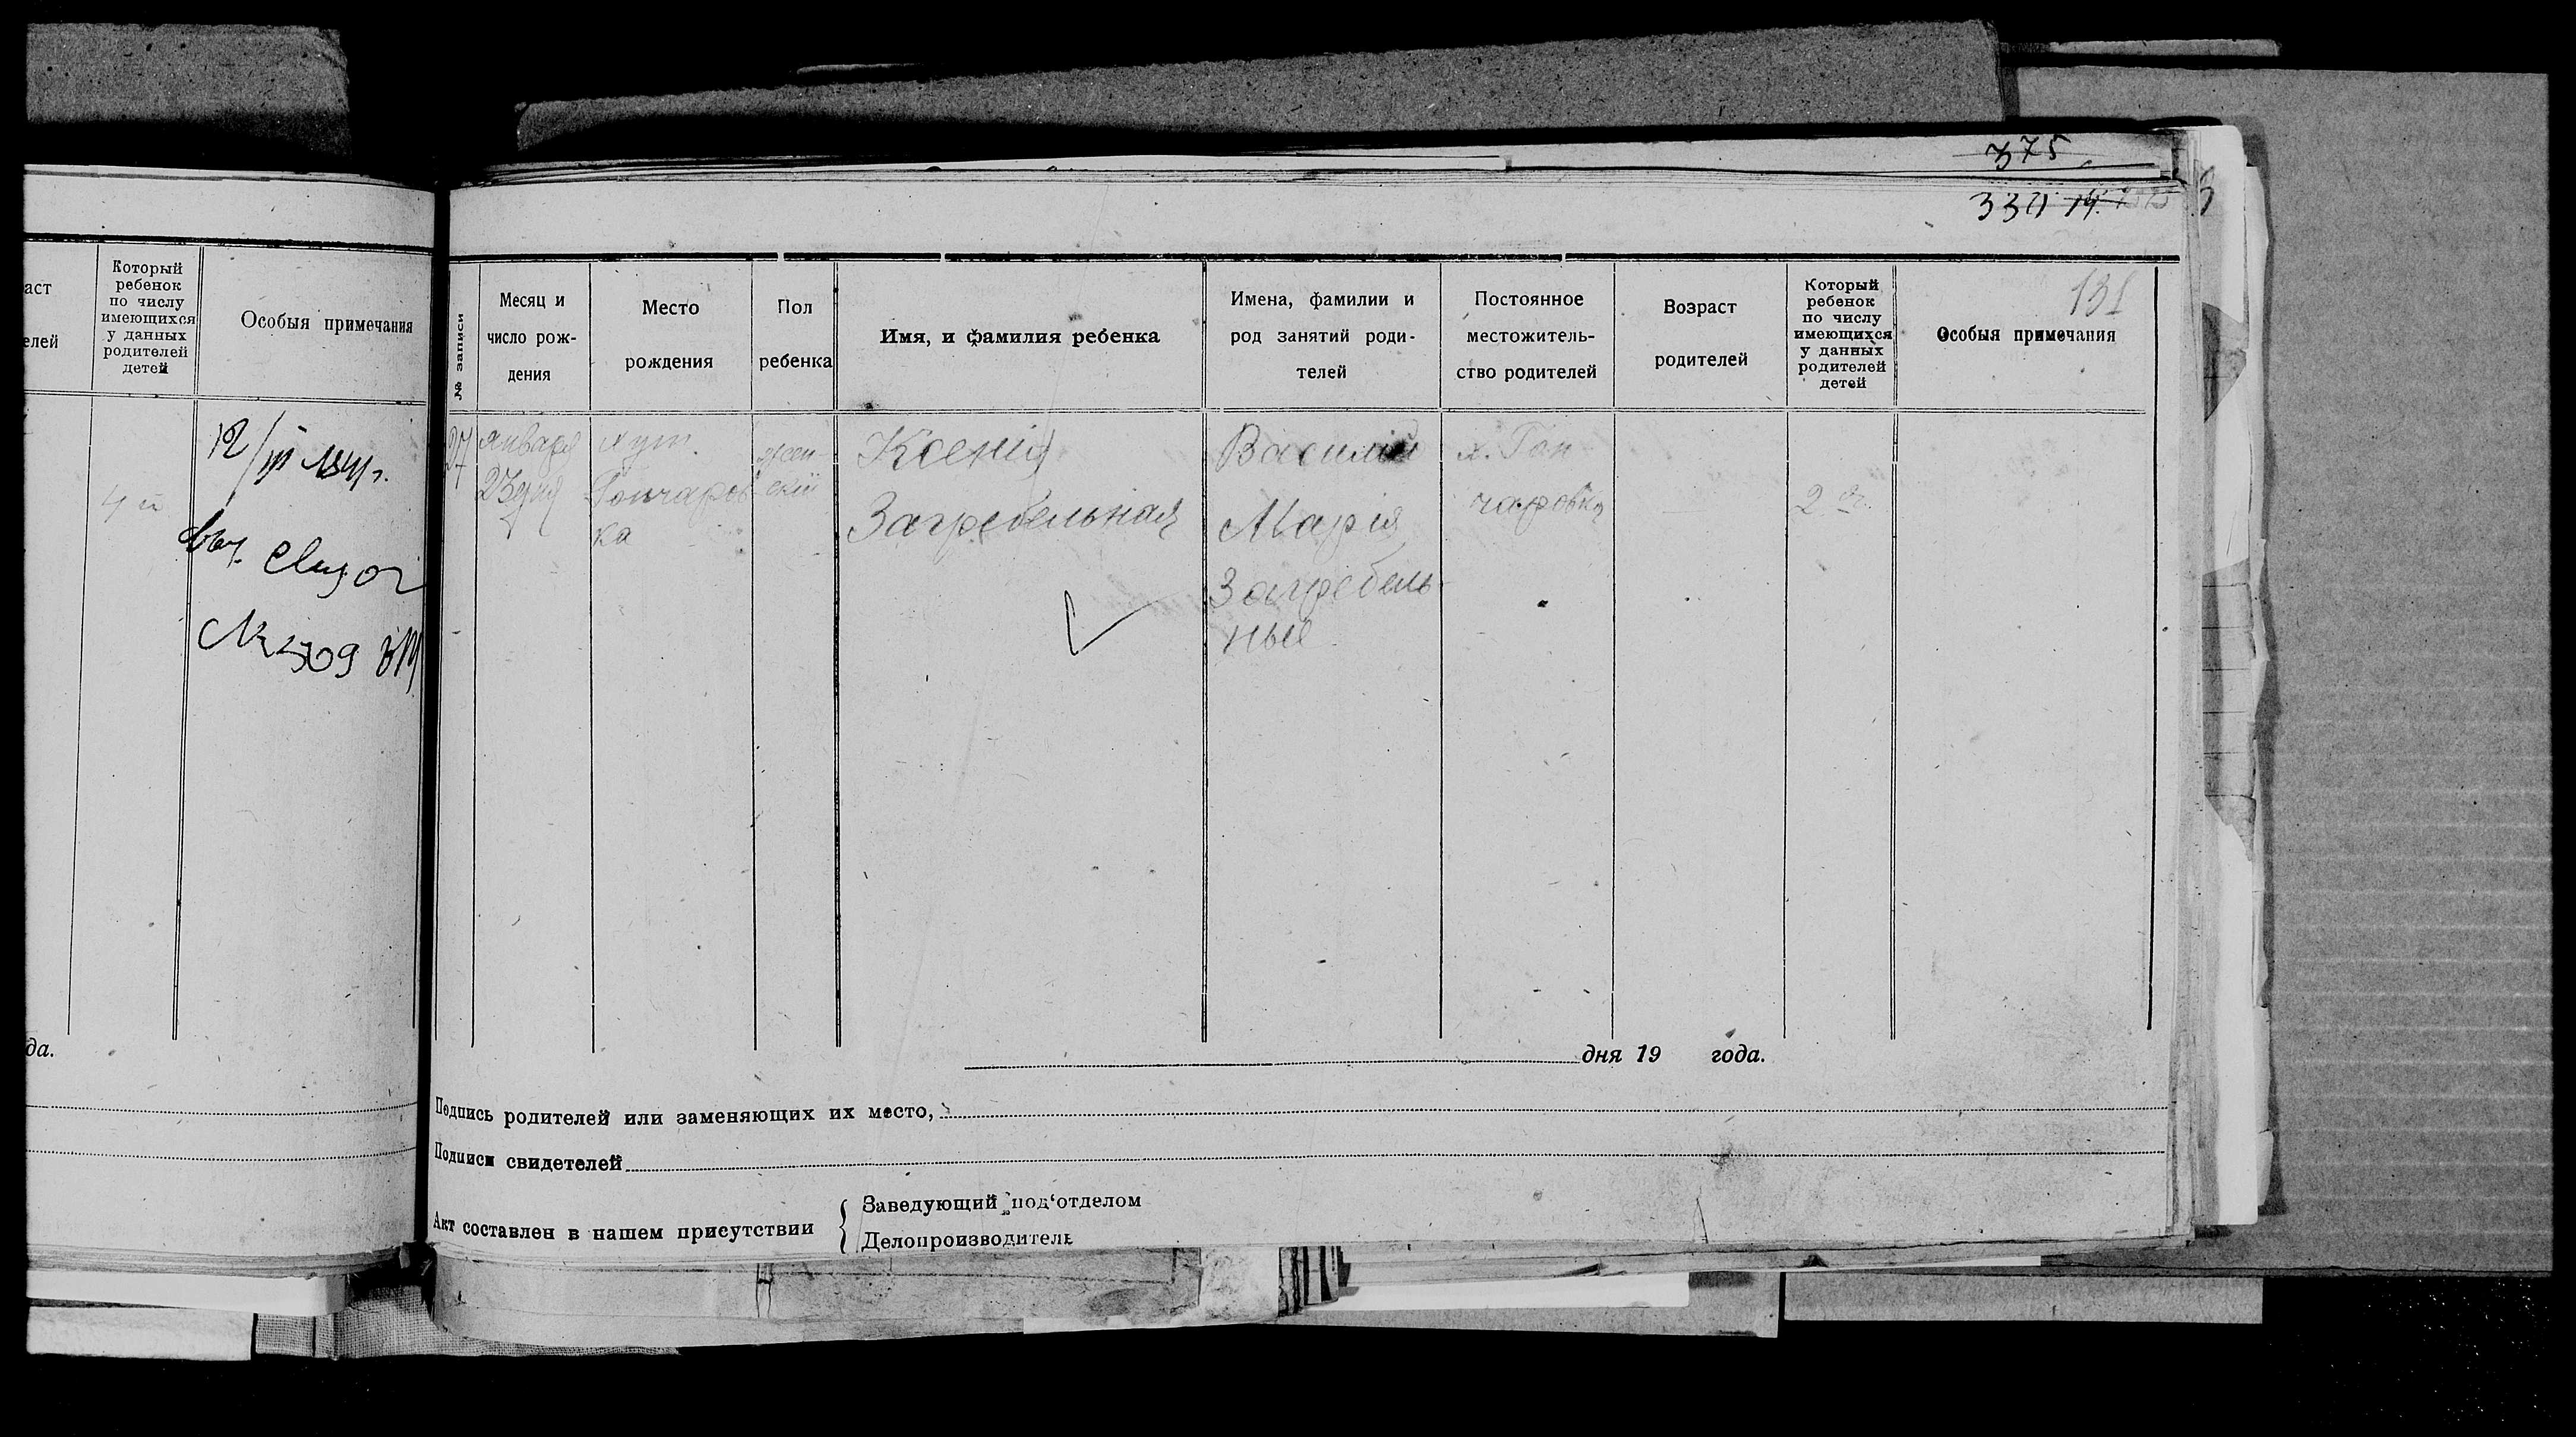 375
330 14
аст
елей
Который
ребенок
по числу
имеющихся
у данных
родителей
детей
Особыя примечания
4 й
12/III 1941 г.
№ 509
да.
131
№ записи
Месяц и
число рож-
дения
Место
рождения
Пол
ребенка
Имя, и фамилия ребенка
Имена, фамилии и
род занятий роди-
телей
Постоянное
местожитель-
ство родителей
Возраст
родителей
Который
ребенок
по числу
имеющихся
у данных
родителей
детей
Особыя примечания
27
января
23 дня
хут.
Гончаров
ка
жен-
скій
Ксенія
Загребельная
Василій
Марія
Загребель-
ные
х. Гон
чаровка
2
дня 19 года.
Подпись родителей или заменяющих их место,
Подписи свидетелей
Акт составлен в нашем присутствии
Заведующий под'отделом
Делопроизводитель